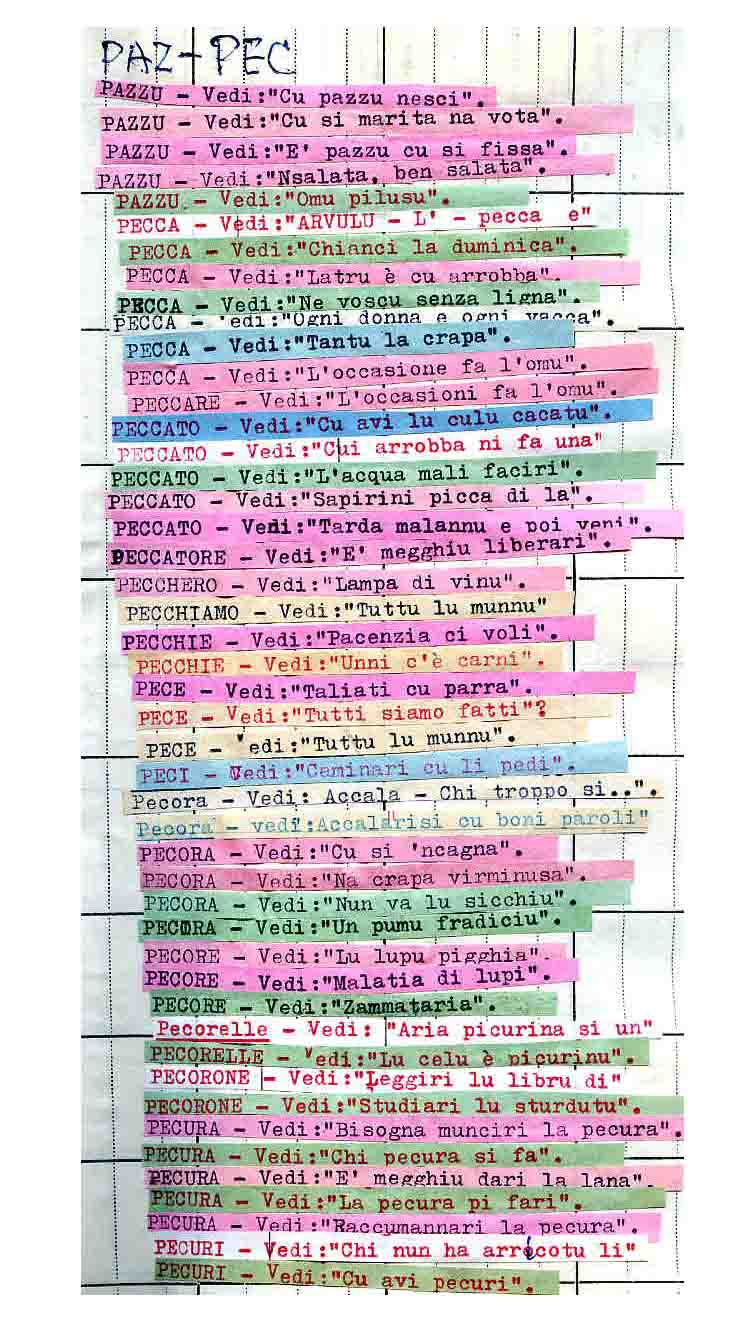 PAZ-PEC
PAZZU - Vedi:"Cu pazzu nesci".
PAZZU - Vedi:"Cu si marita na vota".
PAZZU - Vedi:"E' pazzu cu si fissa".
PAZZU - Vedi:"Nsalata, ben salata".
PAZZU - Vedi:"Omu pilusu".
PECCA - Vedi:"ARVULU - L' - pecca e"
PECCA - Vedi:"Chianci la duminica".
PECCA - Vedi:"Latru è cu arrobba".
PECCA - Vedi:"Ne voscu senza ligna".
PECCA - 'edi:"Ogni donna e ogni vacca".
PECCA - Vedi:"Tantu la crapa".
PECCA - Vedi:"L'occasione fa l'omu".
PECCARE - Vedi:"L'occasioni fa l'omu".
PECCATO - Vedi:"Cu avi lu culu cacatu".
PECCATO - Vedi:"Cui arrobba ni fa una"
PECCATO - Vedi:"L'acqua mali faciri".
PECCATO - Vedi:"Sapirini picca di la".
PECCATO - Vedi:"Tarda malannu e poi veni".
PECCATORE - Vedi:"E' megghiu liberari".
PECCHERO - Vedi:"Lampa di vinu".
PECCHIAMO - Vedi:"Tuttu lu munnu"
PECCHIE - Vedi:"Pacenzia ci voli".
PECCHIE - Vedi:"Unni c'è carni".
PECE - Vedi:"Taliati cu parra".
PECE - Vedi:"Tutti siamo fatti"?
PECE - 'edi:"Tuttu lu munnu".
PECI - Vedi:"Caminari cu li pedi".
Pecora - Vedi: Accala - Chi troppo si..".
Pecora - vedi:Accalarisi cu boni paroli"
PECORA - Vedi:"Cu si 'ncagna".
PECORA - Vedi:"Na crapa virminusa".
PECORA - Vedi:"Nun va lu sicchiu".
PECORA - Vedi:"Un pumu fradiciu".
PECORE - Vedi:"Lu lupu pigghia".
PECORE - Vedi:"Malatia di lupi".
PECORE - Vedi:"Zammataria".
Pecorelle - Vedi: "Aria picurina si un"
PECORELLE - Vedi:"Lu celu è picurinu".
PECORONE - Vedi:"Leggiri lu libru di"
PECORONE - Vedi:"Studiari lu sturdutu".
PECURA - Vedi:"Bisogna munciri la pecura".
PECURA - Vedi:"Chi pecura si fa".
PECURA - Vedi:"E' megghiu dari la lana".
PECURA - Vedi:"La pecura pi fari".
PECURA - Vedi:"Raccumannari la pecura".
PECURI - Vedi:"Chi nun ha arricotu li"
PECURI - Vedi:"Cu avi pecuri".